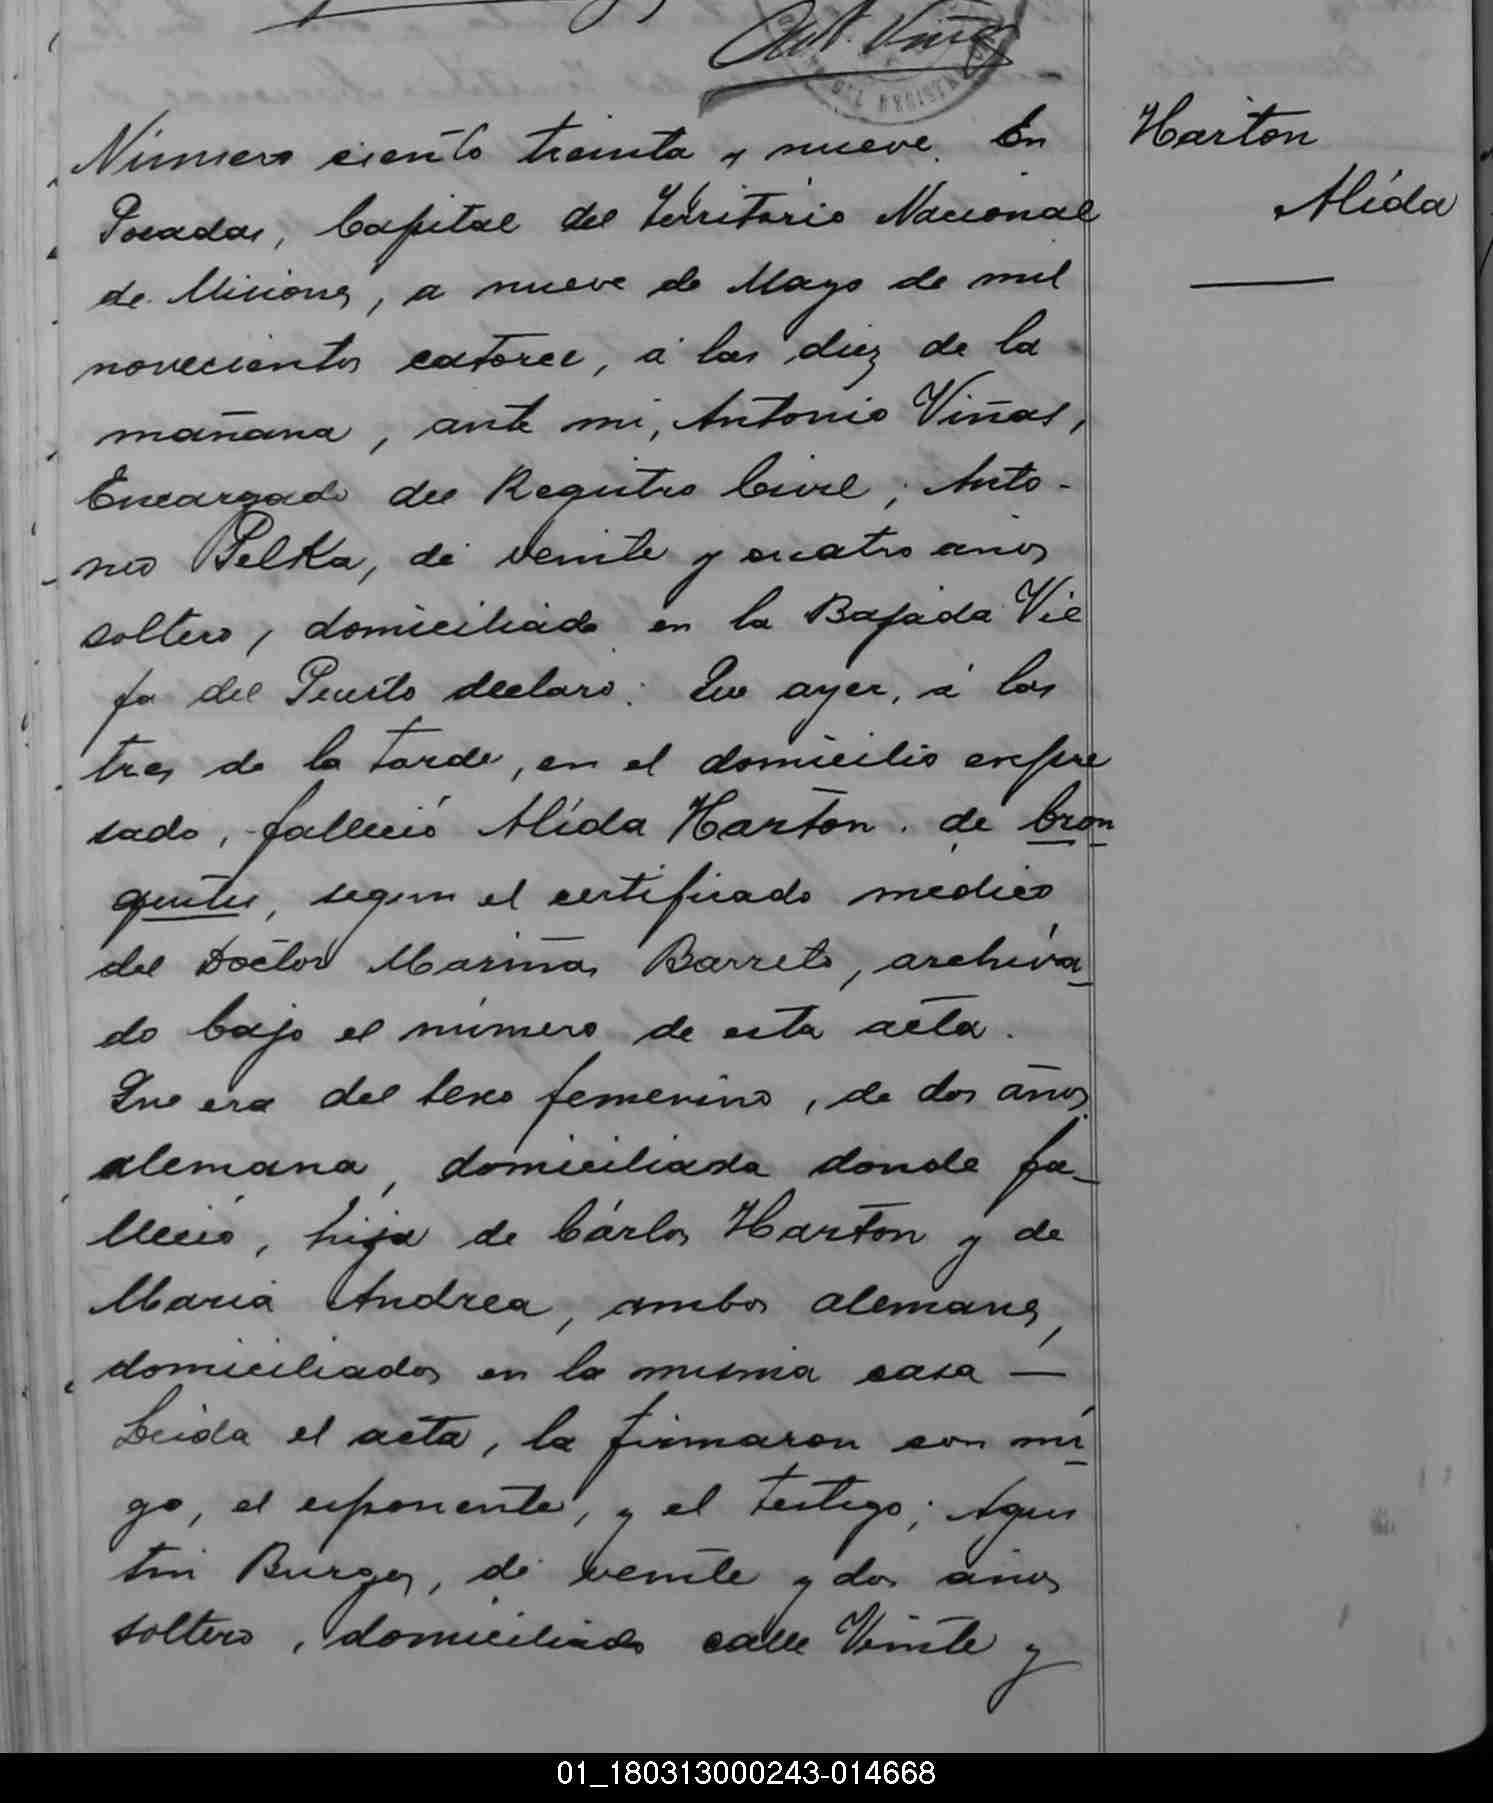 Ant. Viñas
Harton
Alída
Número ciento treinta y nueve. En
Posadas, Capital del Territorio Nacional
de Misiones, a nueve de Mayo de mil
novecientos catorce, á las diez de la
mañana, ante mi, Antonio Viñas,
Encargado del Registro Civil; Anto-
nio Pelka, de veinte y cuatro años
soltero, domiciliado en la Bajada Vie
ja del Puerto declaró: Que ayer, á las
tres de la tarde, en el domicilio expre
sado, falleció Alída Harton. de bron
quitis, segun el certificado médico
del Doctor Mariñas Barreto, archiva-
do bajo el número de esta acta.
Que era del sexo femenino, de dos años,
alemana, domiciliada donde fa-
lleció, hija de Cárlos Harton y de
Maria Andrea, ambos alemanes,
domiciliados en la misma casa —
Leida el acta, la firmaron con mi
go, el exponente, y el testigo; Agus
tin Burgos, de veinte y dos años
soltero, domiciliado calle Veinte y
01_180313000243-014668